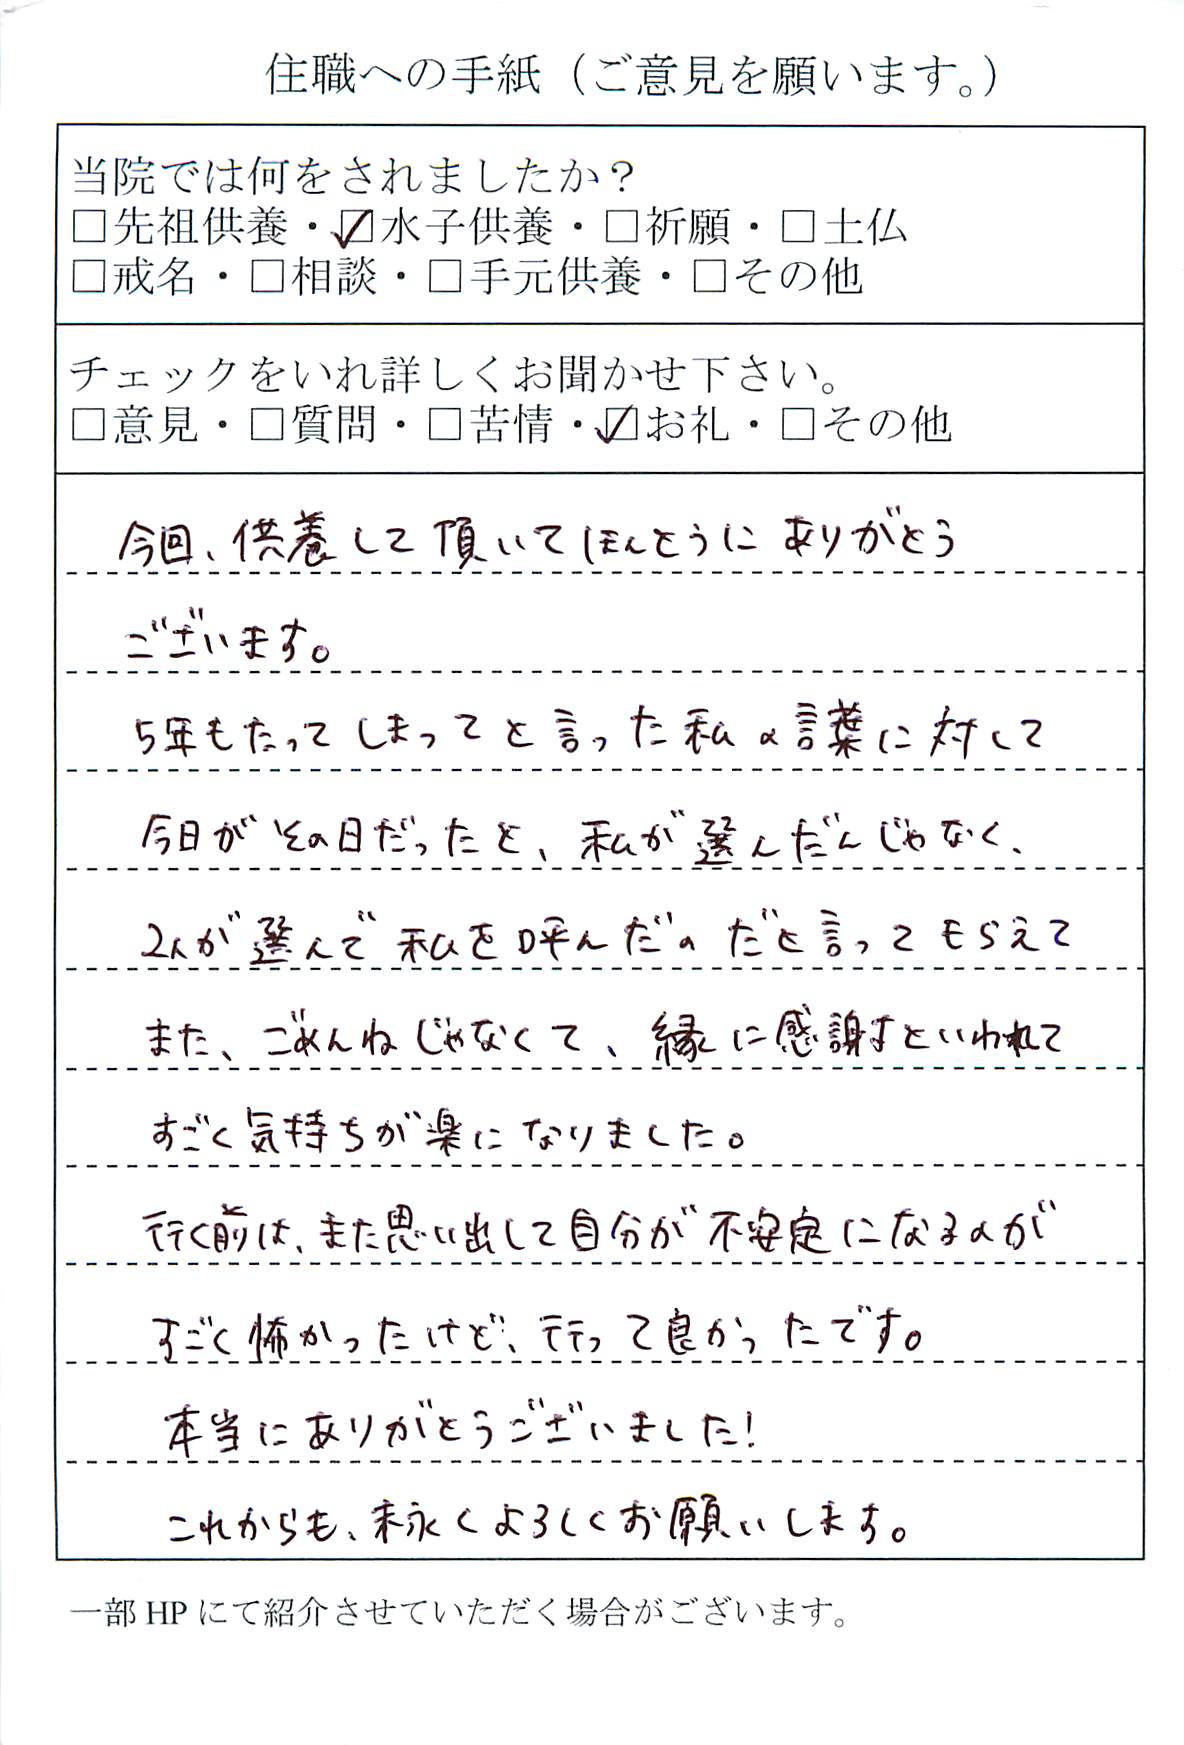 住職への手紙（ご意見を願います。）
当院では何をされましたか？
□先祖供養・☑水子供養・□祈願・□土仏
□戒名・□相談・□手元供養・□その他
チェックをいれ詳しくお聞かせ下さい。
□意見・□質問・□苦情・☑お礼・□その他
今回、供養して頂いてほんとうにありがとう
ございます。
5年もたってしまってと言った私の言葉に対して
今日がその日だったと、私が選んだんじゃなく、
2人が選んで私を呼んだのだと言ってもらえて
また、ごめんねじゃなくて、縁に感謝すといわれて
すごく気持ちが楽になりました。
行く前は、また思い出して自分が不安定になるのが
すごく怖かったけど、行って良かったです。
本当にありがとうございました!
これからも、末永くよろしくお願いします。
一部 HP にて紹介させていただく場合がございます。